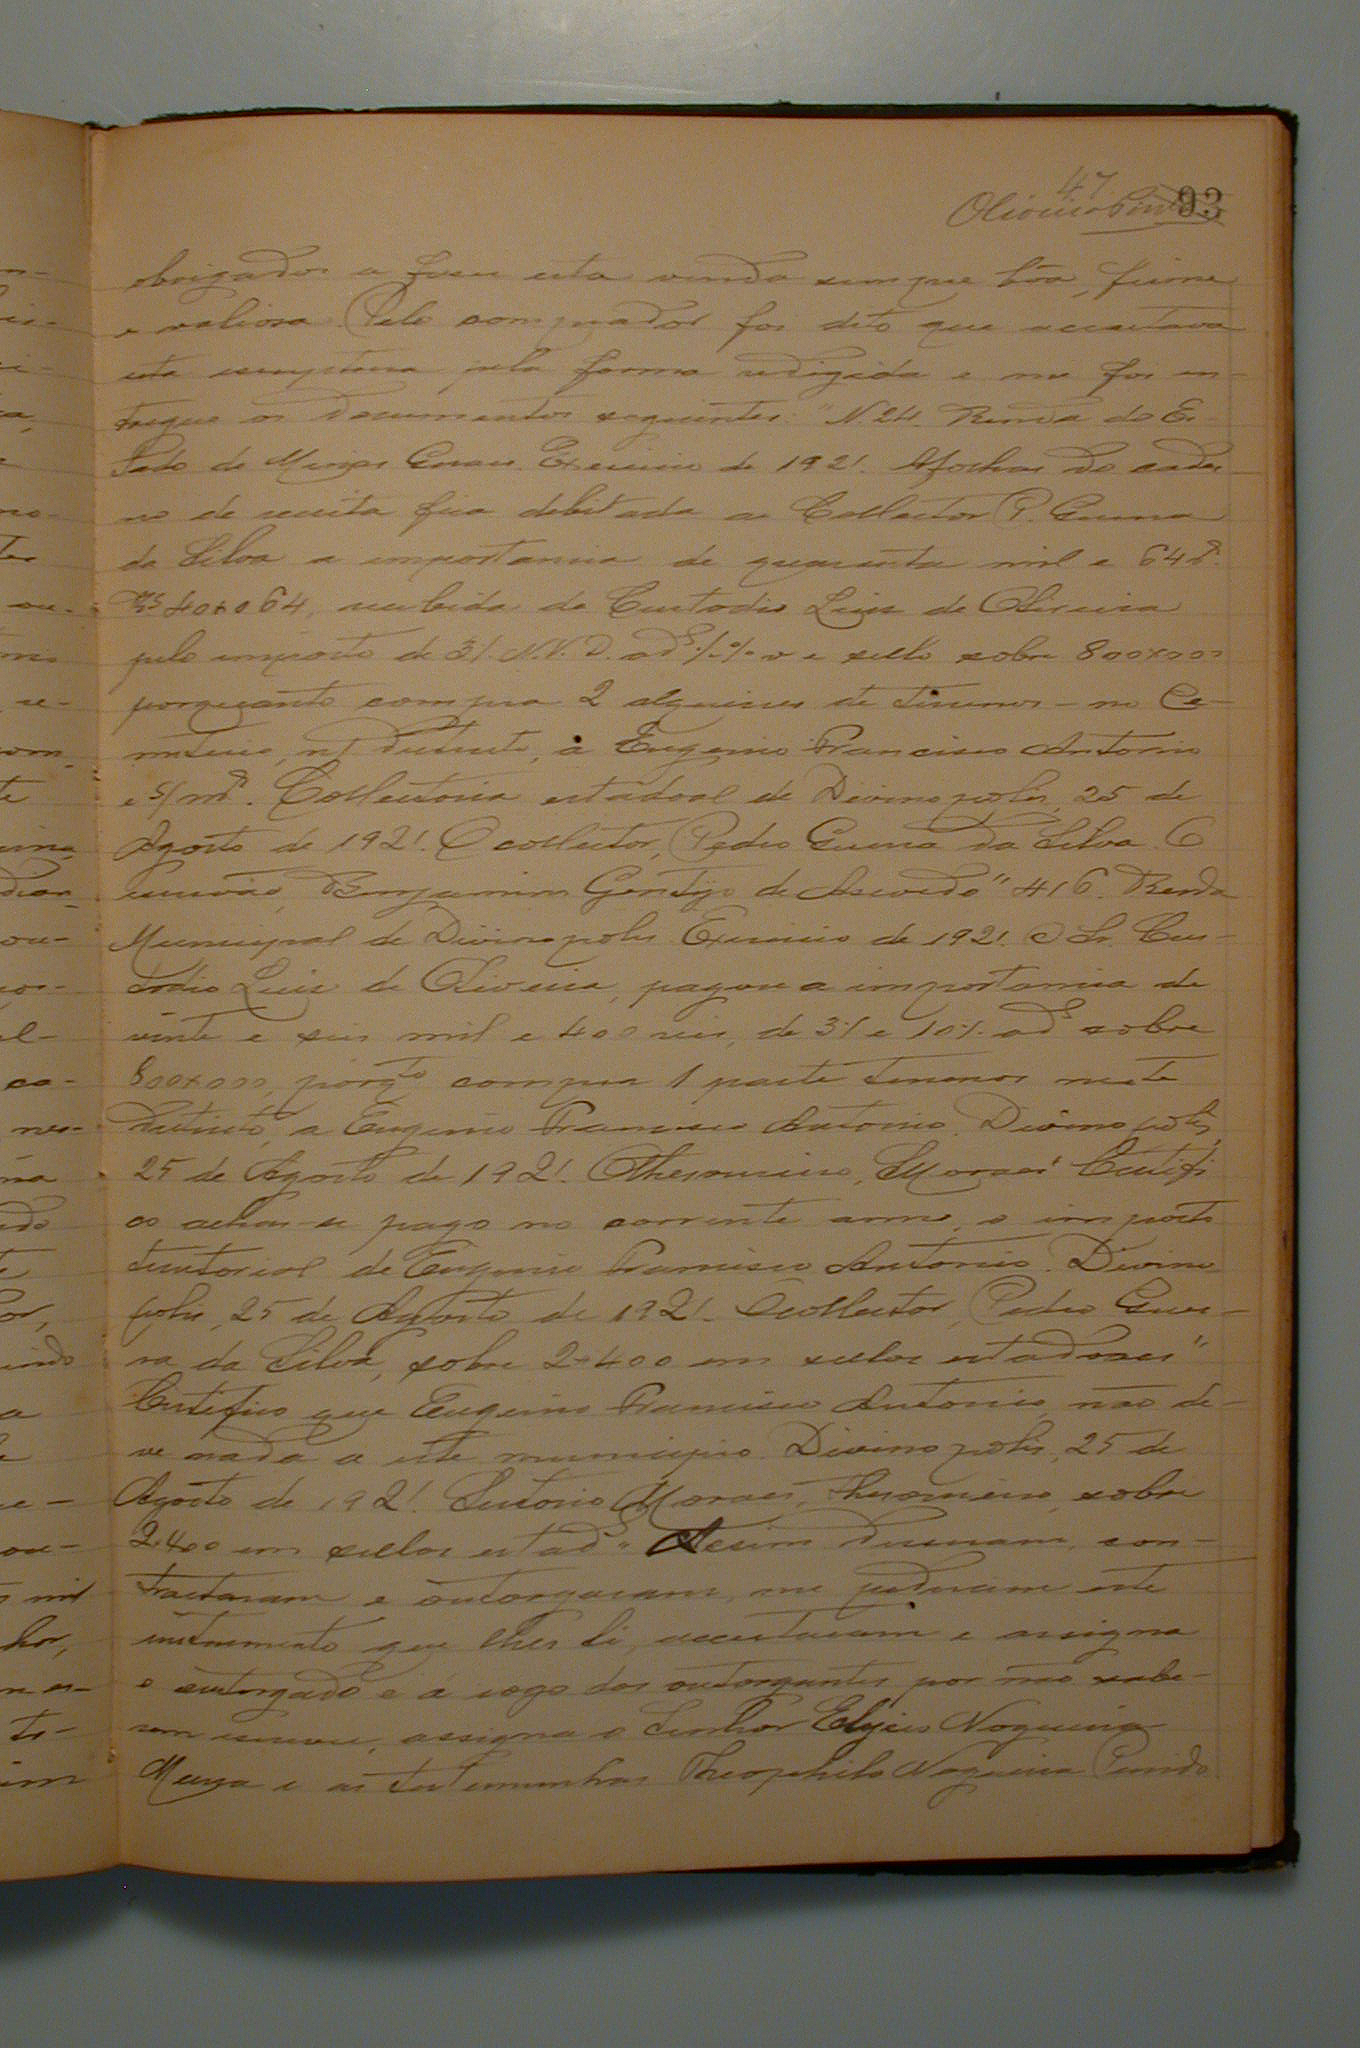 47
93
obrigados a fazer esta venda sempre bôa, firme
e valiosa. Pelo comprador foi dito que acceitava
esta escriptura pela forma redigida e me foi en-
tregue os documentos seguintes: "N. 24. Renda do Es-
tado de Minas Geraes. Exercicio de 1921. A folhas do cader
no de receita fica debitada ao Collector P. Guerra
da Silva a importancia de quarenta mil e 64 rs.
Rs 40$064, recebida de Custodio Luiz de Oliveira
pelo imposto de 3% N.V.D. e sello sobre 800$000
porquanto compra 2 alqueires de terrenos - no Ce-
miterio, n/ districto, a Eugenio Francisco Antonio
e s/ mr. Collectoria estadoal de Divinopolis, 25 de
Agosto de 1921. O collector, Pedro Guerra da Silva. O
escrivão, Benjamim Gontijo de Azevedo" 416. Renda
Municipal de Divinopolis. Exercicio de 1921. O Sr. Cus-
todio Luiz de Oliveira, pagou a importancia de
vinte e seis mil e 400 reis, de 3% e 10% ads sobre
800$000, porqto compra 1 parte terrenos neste
districto, a Eugenio Francisco Antonio. Divinopolis,
25 de Agosto de 1921. O thesoureiro, Moraes" Certifi
co achar-se pago no corrente anno, o imposto
territorial de Eugenio Francisco Antonio. Divino-
polis, 25 de Agosto de 1921. O collector, Pedro Guer-
ra da Silva, sobre 2$400 em sellos estadoaes"
Certifico que Eugenio Francisco Antonio, não de-
ve nada a este municipio. Divinopolis, 25 de
Agosto de 1921. Moraes, thesoureiro, sobre
2$400 em sellos estads" Assim disseram, con-
tractaram e outorgaram, me pediram este
instrumento que lhes li, acceitaram e assigna
o outorgado e a rogo dos outorgantes por não sabe-
rem escrever, assigna o Senhor Elyseu Nogueira
e as testemunhas Theophilo Nogueira Penido